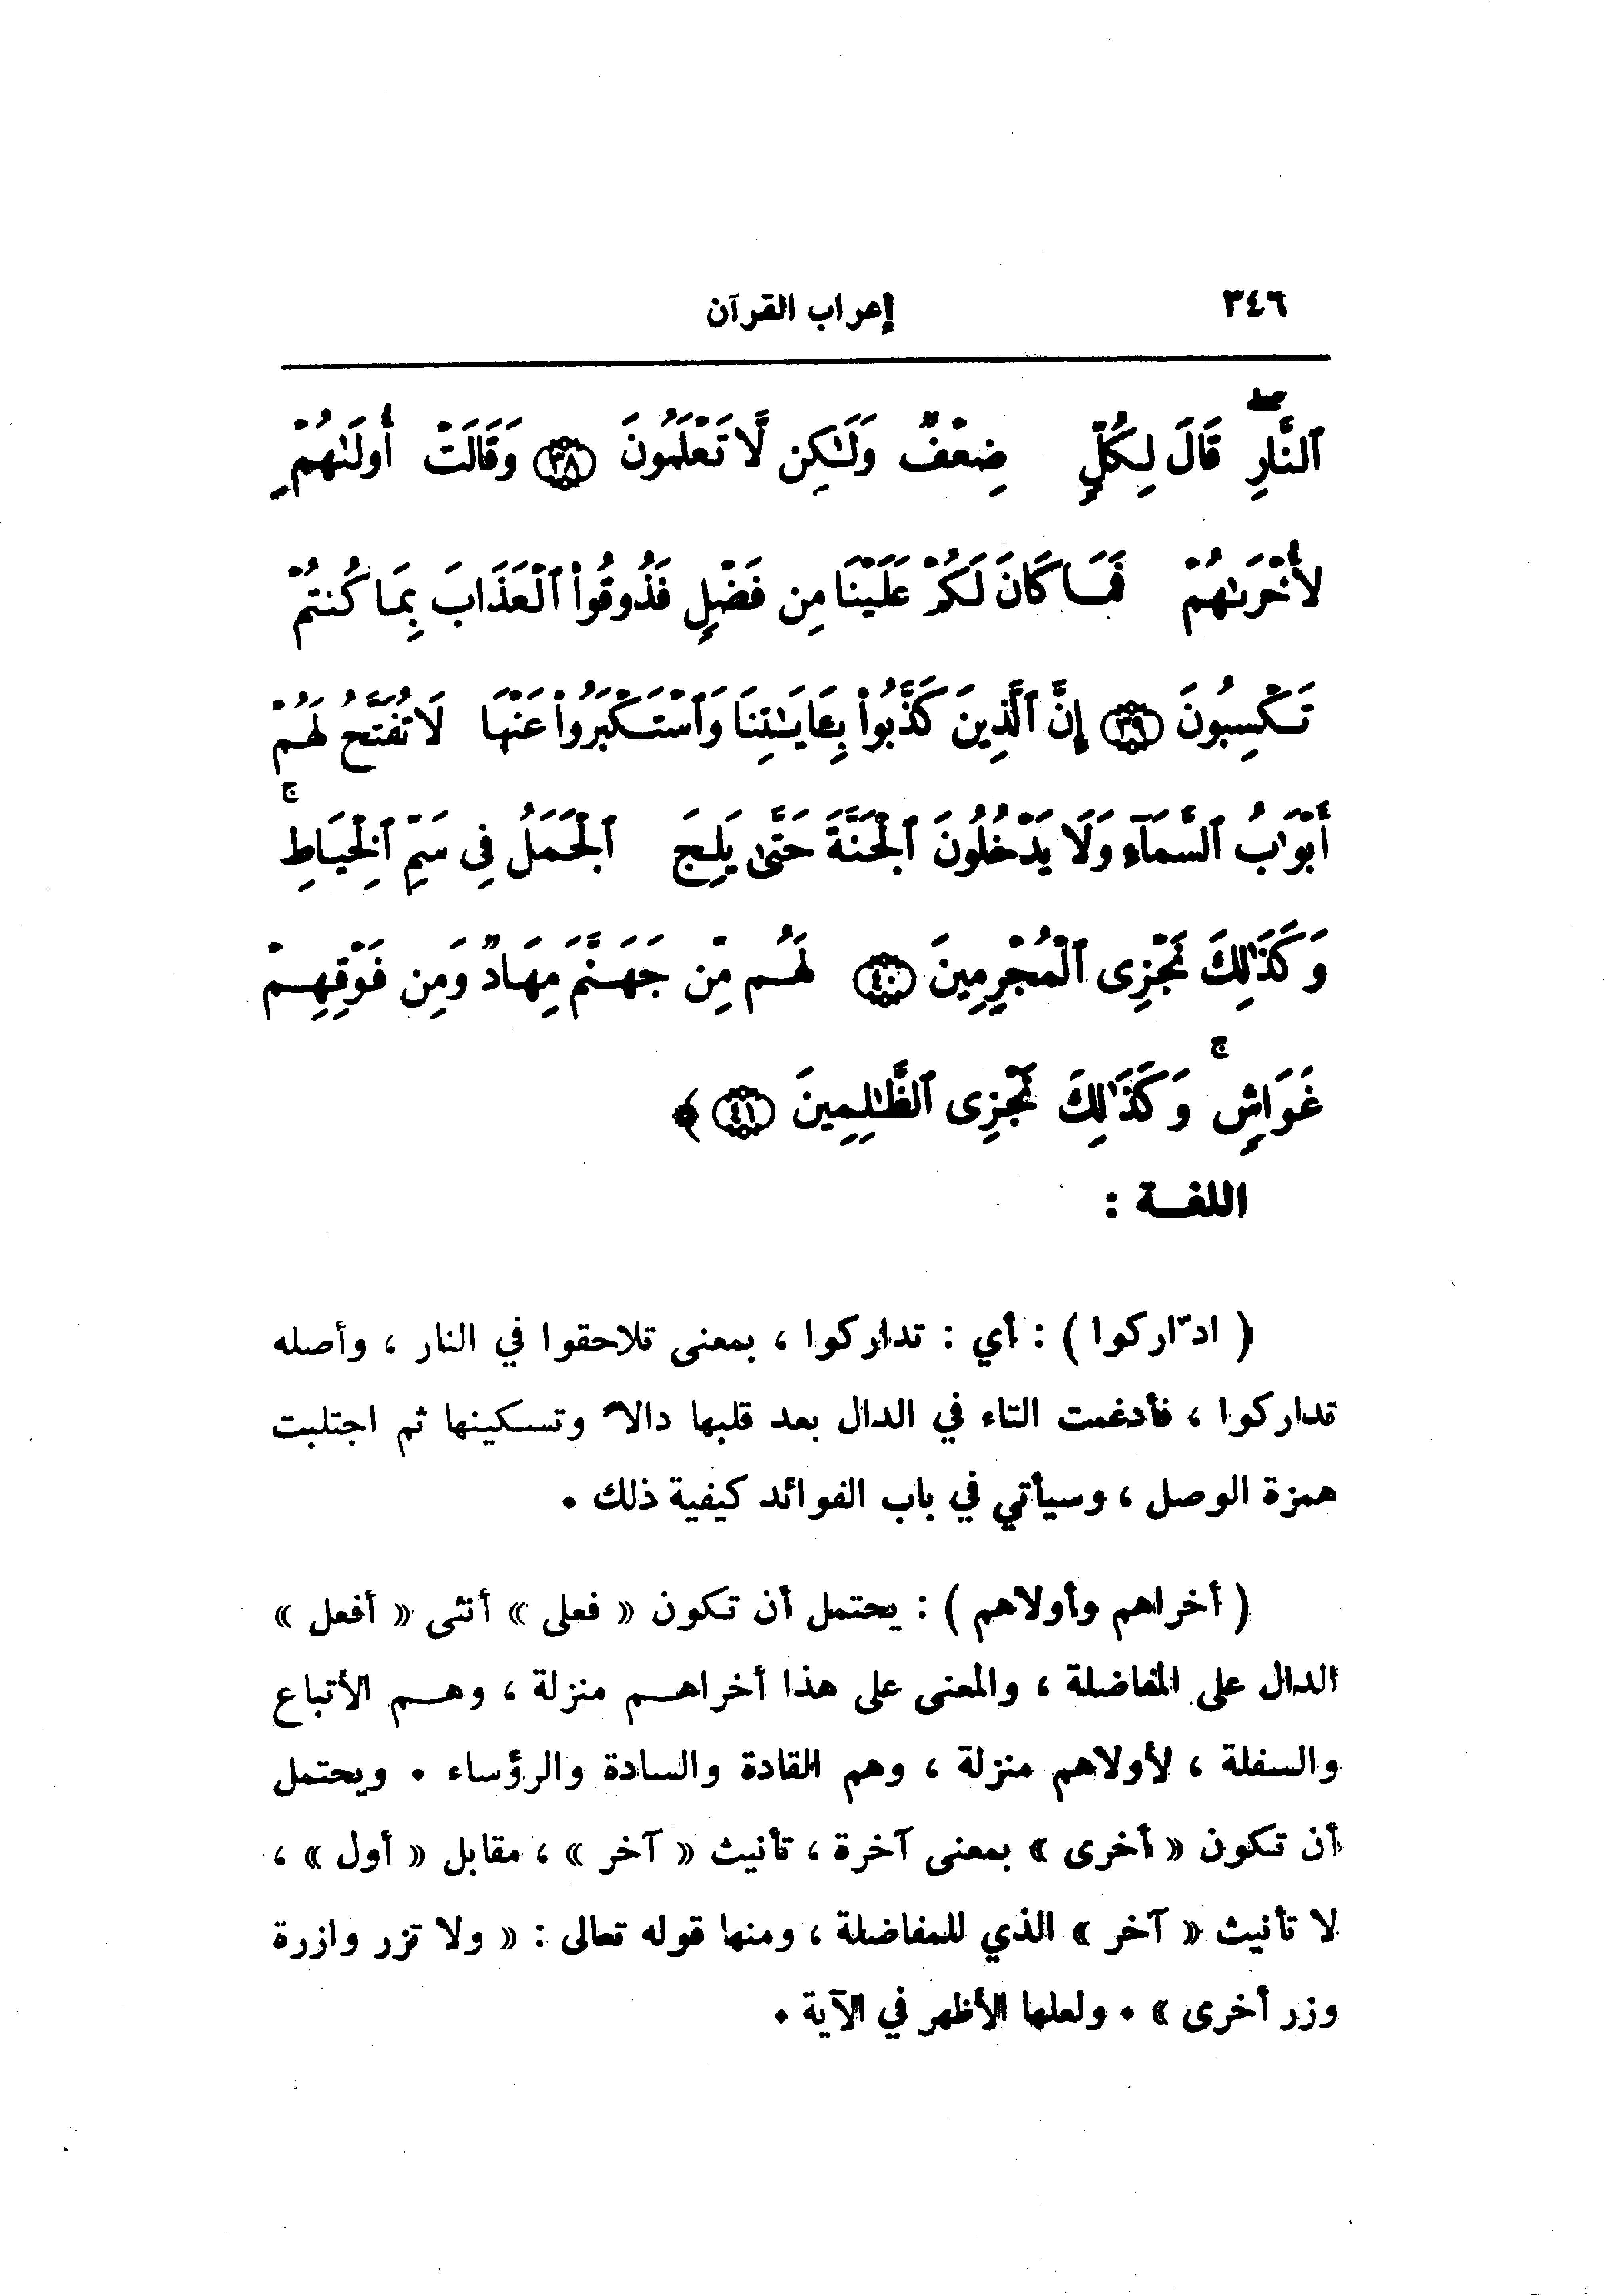 ٣٤٦ إعراب القرآن
ٱلنَّارِ ۖ قَالَ لِكُلٍّ ضِعْفٌ وَلَٰكِن لَّا تَعْلَمُونَ ﴿٣٨﴾ وَقَالَتْ أُولَىٰهُمْ
لِأُخْرَىٰهُمْ فَمَا كَانَ لَكُمْ عَلَيْنَا مِن فَضْلٍ فَذُوقُوا۟ ٱلْعَذَابَ بِمَا كُنتُمْ
تَكْسِبُونَ ﴿٣٩﴾ إِنَّ ٱلَّذِينَ كَذَّبُوا۟ بِـَٔايَٰتِنَا وَٱسْتَكْبَرُوا۟ عَنْهَا لَا تُفَتَّحُ لَهُمْ
أَبْوَٰبُ ٱلسَّمَآءِ وَلَا يَدْخُلُونَ ٱلْجَنَّةَ حَتَّىٰ يَلِجَ ٱلْجَمَلُ فِى سَمِّ ٱلْخِيَاطِ ۚ
وَكَذَٰلِكَ نَجْزِى ٱلْمُجْرِمِينَ ﴿٤٠﴾ لَهُم مِّن جَهَنَّمَ مِهَادٌ وَمِن فَوْقِهِمْ
غَوَاشٍ ۚ وَكَذَٰلِكَ نَجْزِى ٱلظَّٰلِمِينَ ﴿٤١﴾ ﴾
اللغة :
( ادّاركوا ) : أي : تداركوا ، بمعنى تلاحقوا في النار ، وأصله
تداركوا ، فأدغمت التاء في الدال بعد قلبها دالاً وتسكينها ثم اجتلبت
همزة الوصل ، وسيأتي في باب الفوائد كيفية ذلك .
( أخراهم وأولاهم ) : يحتمل أن تكون « فعلى » أنثى « أفعل »
الدال على المفاضلة ، والمعنى على هذا أخراهم منزلة ، وهم الأتباع
والسفلة ، لأولاهم منزلة ، وهم القادة والسادة والرؤساء . ويحتمل
أن تكون « أخرى » بمعنى آخرة ، تأنيث « آخر » ، مقابل « أول » ،
لا تأنيث « آخر » الذي للمفاضلة ، ومنها قوله تعالى : « ولا تزر وازرة
وزر أخرى » . ولعلها الأظهر في الآية .